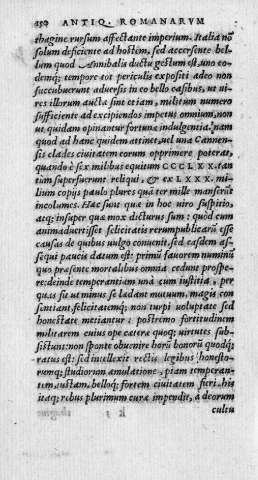 250 ANTIQ. ROMANARVM
thagine rursum affectante imperium. Italia nõ
solum deficiente ad hostem, sed accersente bel-
lum quod Annibalis ductu gestum est, uno eo-
demq; tempore tot periculis expositi adeo non
succubuerunt aduersis in eo bello casibus, ut ui-
res illorum aucta sint etiam, militum numero
sufficiente ad excipiendos impetus omnium, non
ut quidam opinantur fortunæ indulgentia, nam
quod ad hanc quidem attinet, uel una Cannen-
sis clades ciuitatem eorum opprimere poterat,
quando è sex milibus equitum CCCLXX tan
tum superfuerunt reliqui, & ex LXXX. mi-
lium copijs paulo plures quà ter mille manserũt
incolumes. Hæc sunt quæ in hoc uiro suspitio,
atq; insuper quæ mox dicturus sum: quod cum
animaduertisset felicitatis rerumpublicarũ esse
causas de quibus uulgo conuenit, sed easdem as-
sequi paucis datum est: primũ fauorem numinũ
quo præsente mortalibus omnia cedunt prospe-
re: deinde temperantiam unà cum iustitia, per
quas fit ut minus se lædant mutuum, magis con
sentiant, felicitatemq; non turpi uoluptate sed
honestate metiantur: postremo fortitudinem
militarem cuius ope cæteræ quoq; uirtutes sub-
sistunt: non sponte obuenire horũ bonorũ quodq;
ratus est: sed intellexit rectis legibus honesto-
rumq; studiorum æmulatione, piam temperan-
tem, iustam, belloq; fortem ciuitatem fieri. his
itaq; rebus plurimum curæ impendit, à deorum
cultu